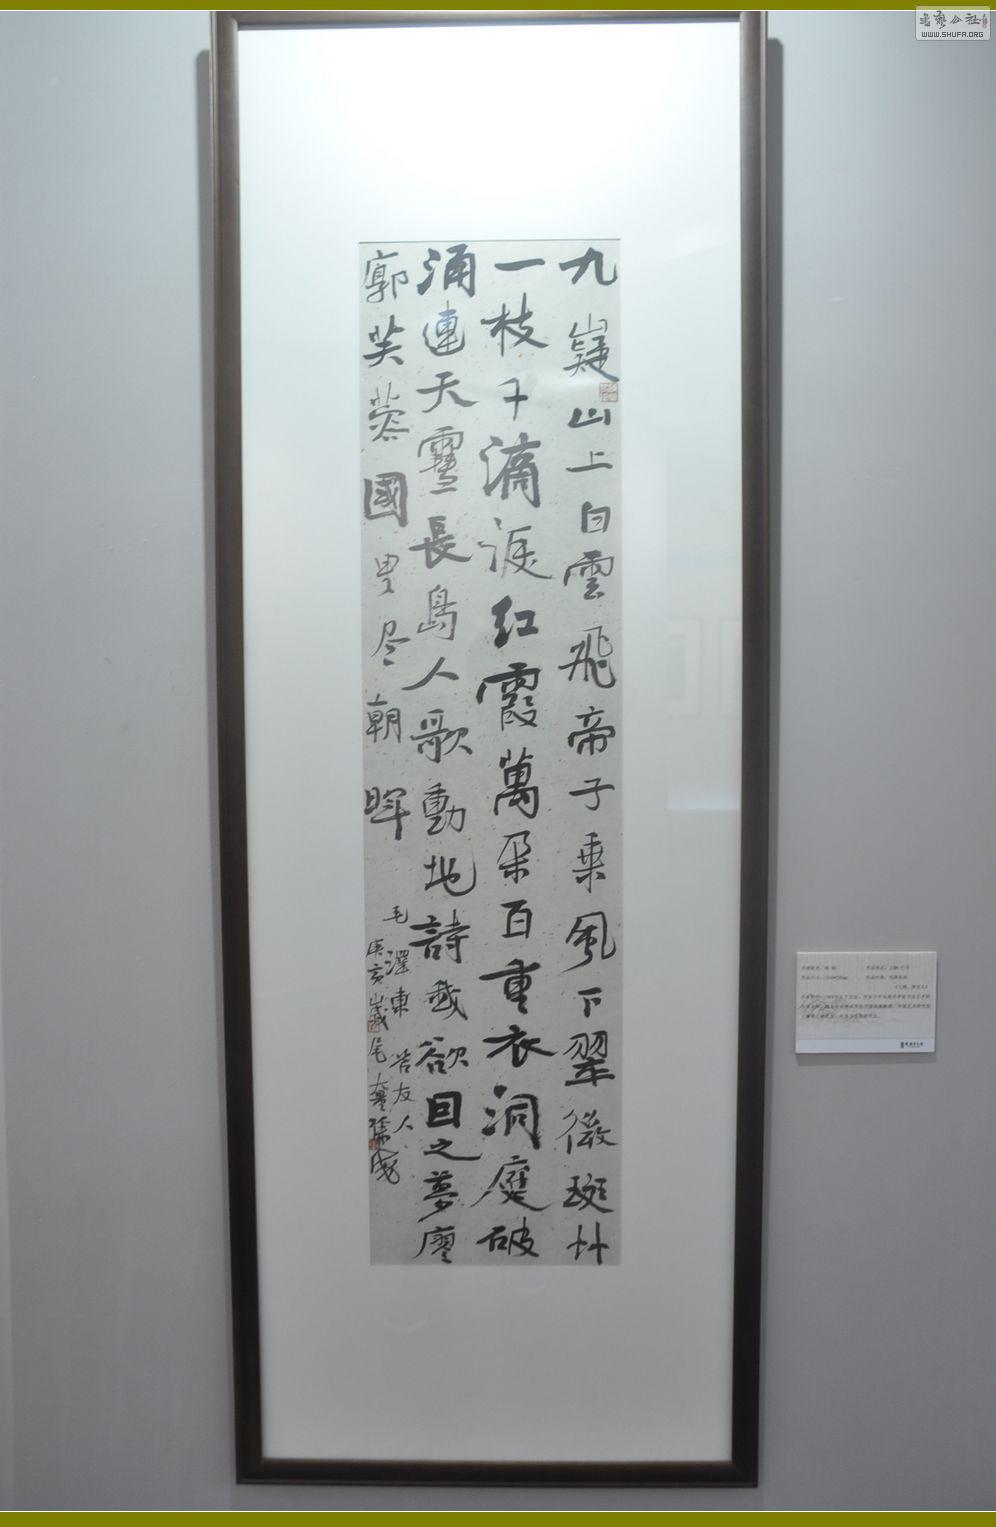 九嶷山上白雲飛帝子乘風下翠微斑竹
一枝千滴淚紅霞萬朵百重衣洞庭破
涌連天雪長島人歌動地詩我欲因之夢廖
廓芙蓉國里尽朝暉
毛澤東答友人
亥歲尾
书艺公社
WWW.SHUFA.ORG